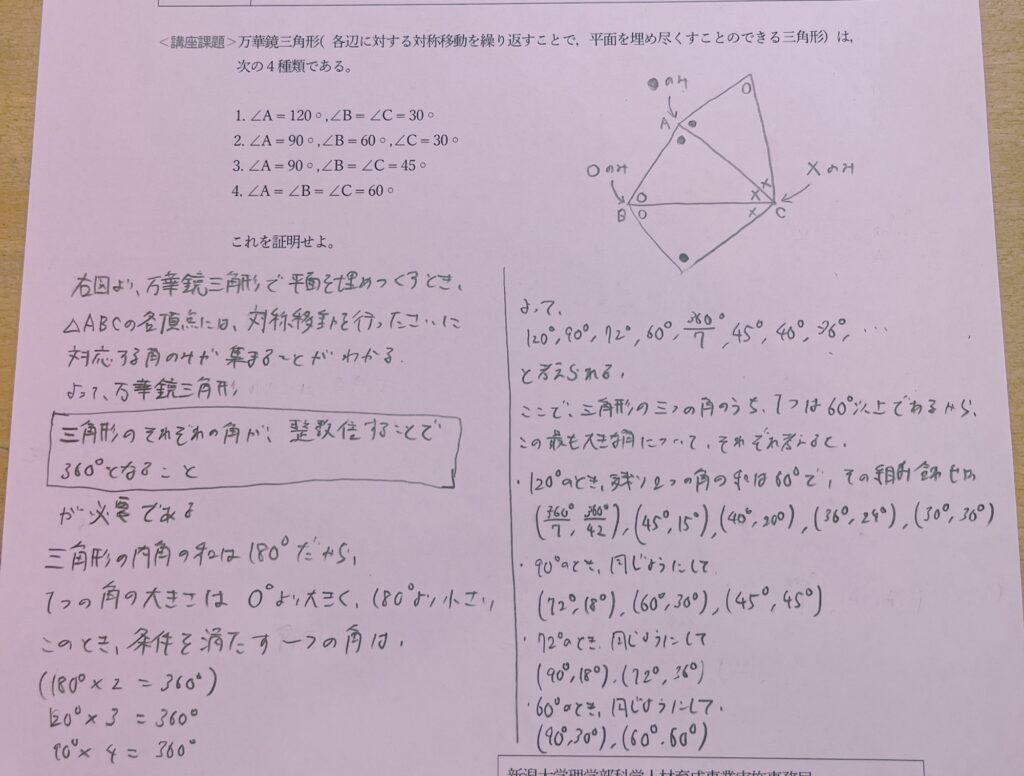 <講座課題>万華鏡三角形( 各辺に対する対称移動を繰り返すことで, 平面を埋め尽くすことのできる三角形) は,
次の4種類である。
1. ∠A = 120°,∠B = ∠C = 30°
2. ∠A = 90°,∠B = 60°,∠C = 30°
3. ∠A = 90°,∠B = ∠C = 45°
4. ∠A = ∠B = ∠C = 60°
これを証明せよ。
●のみ
A
○のみ
B
×のみ
C
右図より、万華鏡三角形で平面を埋めつくすとき、
△ABCの各頂点には、対称移動を行ったさいに
対応する角のみが集まることがわかる.
よって、万華鏡三角形
三角形のそれぞれの角が、整数倍することで
360°となること
が必要である
三角形の内角の和は180°だから、
1つの角の大きさは 0°より大きく、180°より小さい
このとき、条件を満たす一つの角は、
(180° × 2 = 360°)
120° × 3 = 360°
90° × 4 = 360°
よって、
120°, 90°, 72°, 60°, 360°/7, 45°, 40°, 36°, …
と考えられる。
ここで、三角形の三つの角のうち、1つは60°以上であるから、
この最も大きな角について、それぞれ考えると、
・120°のとき、残り2つの角の和は60°で、その組み合わせは
(360°/7, 360°/42), (45°, 15°), (40°, 20°), (36°, 24°), (30°, 30°)
・90°のとき、同じようにして
(72°, 18°), (60°, 30°), (45°, 45°)
・72°のとき、同じようにして
(90°, 18°), (72°, 36°)
・60°のとき、同じようにして、
(90°, 30°), (60°, 60°)
新潟大学理学部科学人材育成事業実施事務局